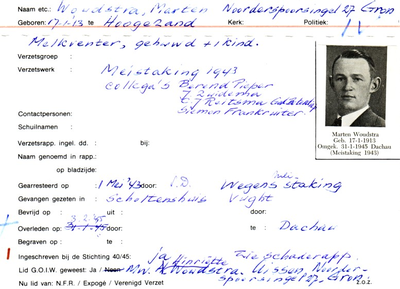 Naam etc.: Woudstra, Marten Noorderspoorsingel 27 Gron
Geboren: 17.1.'13 te Hoogezand Kerk: Politiek:
Melkventer, gehuwd + 1 kind.
Verzetsgroep :
Verzetswerk : Meistaking 1943
collega's Berend Pieper
J Zuidema
Siemen Frankruiter
Contactpersonen:
Schuilnamen :
Marten Woudstra
Geb. 17-1-1913
Omgek. 31-1-1945 Dachau
(Meistaking 1943)
Verzetsrapp. ingel. dd. : bij:
Naam genoemd in rapp.:
op bladzijde:
Gearresteerd op : 1 Mei '43 door: S.D. Wegens staking
Gevangen gezeten in : Scholtenshuis Vught
Bevrijd op : uit : door:
3.2.'45
Overleden op : 31.1.'45 te : Dachau
Begraven op : te :
Ingeschreven bij de Stichting 40/45: ja Zie schaderapp.
Lid G.O.I.W. geweest: Ja / Neen Henriëtte Mw. Woudstra. Noorder-
spoorsingel 27. Gron.
Nu lid van: N.F.R. / Expogé / Verenigd Verzet 2.0.2.